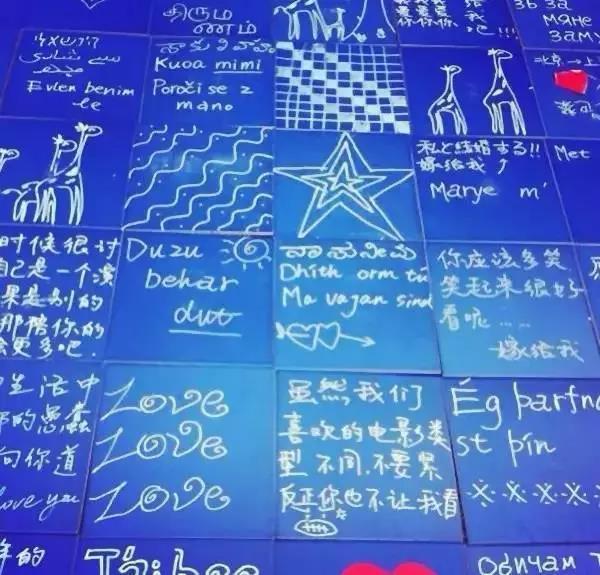 திரும
ணம்
你你你.
给 我
吧!!!
ЗЬ ЗА
МЯНЕ
ЗАМУ
Evlen benim
le
Kuoa mimi
Poroči se z
mano
私と結婚する!!
嫁给我
Marye m'
Met
时候很讨
自己是一个演
果是别的
那陪你的
会更多吧.
Duzu
behar
dut
Dhith orm tú
Ma vagan sind
你应该多笑,
笑起来很好
看呢……
嫁给我
生活中
的愚蠢
向你道
love you
Love
Love
Love
虽然,我们
喜欢的电影类
型不同.不要紧
反正你也不让我看
Ég parfna
st pín
年的
Обичам Т